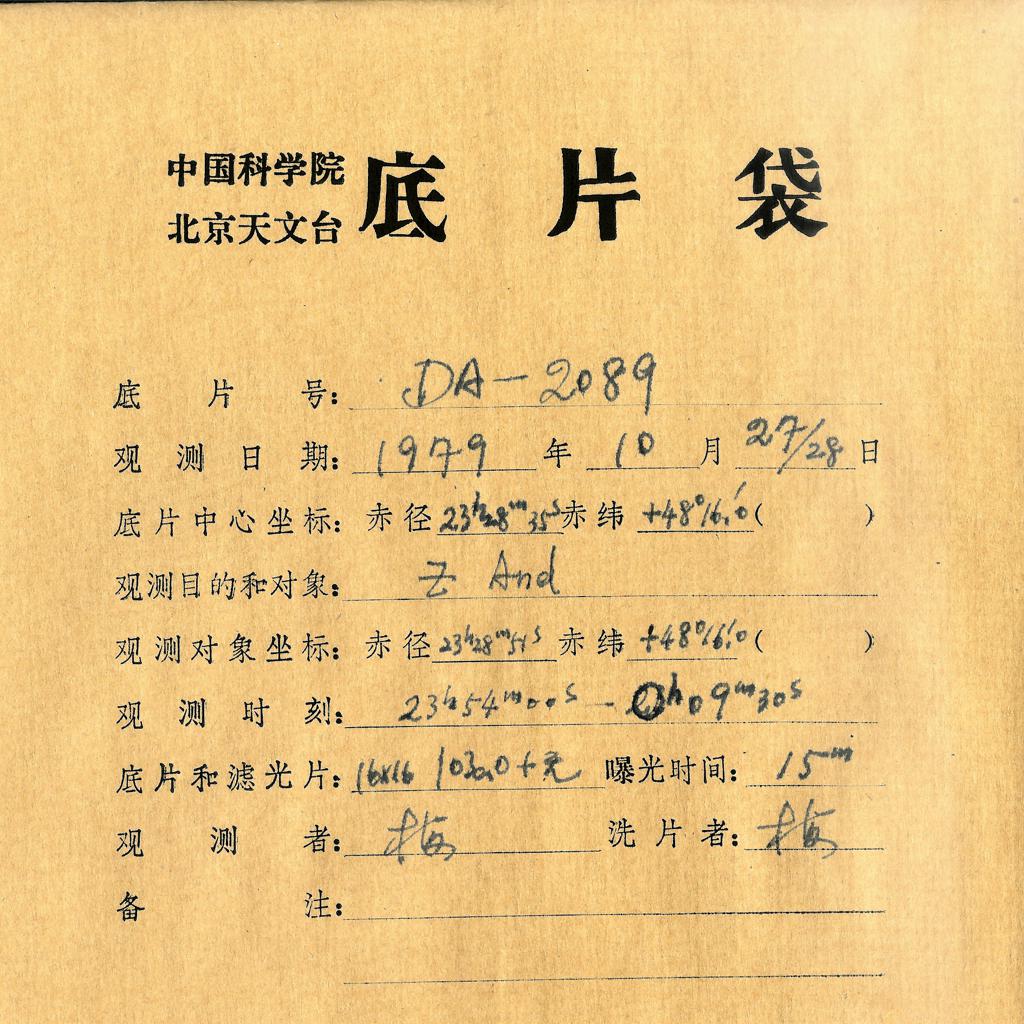 中国科学院
北京天文台 底片袋
底片号: DA-2089
观测日期: 1979年10月27/28日
底片中心坐标: 赤径23h28m35s赤纬+48°16.0′( )
观测目的和对象: Z And
观测对象坐标: 赤径23h28m51s赤纬+48°16.0′( )
观测时刻: 23h54m00s - 0h09m30s
底片和滤光片: 16x16 103aO+无 曝光时间: 15m
观测者: 梅 洗片者: 梅
备注: